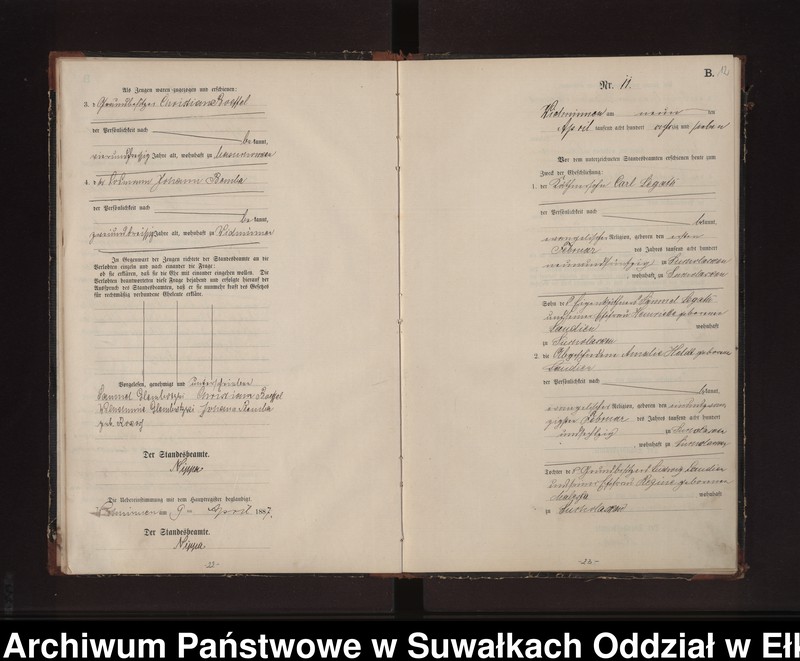 Als Zeugen waren zugezogen und erschienen:
3. der Grundbesitzer Christian Roeffel
der Persönlichkeit nach
be kannt,
Jahre alt, wohnhaft zu
4. der Johann Bemba
der Persönlichkeit nach
be kannt,
Jahre alt, wohnhaft zu Widminnen
In Gegenwart der Zeugen richtete der Standesbeamte an die
Verlobten einzeln und nach einander die Frage:
ob sie erklären, daß sie die Ehe mit einander eingehen wollen. Die
Verlobten beantworteten diese Frage bejahend und erfolgte hierauf der
Ausspruch des Standesbeamten, daß er sie nunmehr kraft des Gesetzes
für rechtmäßig verbundene Eheleute erkläre.
Vorgelesen, genehmigt und unterschrieben
Samuel
Wilhelmine Johann Bemba
geb.
Der Standesbeamte.
Nippa
Die Uebereinstimmung mit dem Hauptregister beglaubigt.
Widminnen am 9ten April 1887.
Der Standesbeamte.
Nippa
-22-
B. 12
Nr. 11.
Widminnen am neun ten
April tausend acht hundert achtzig und sieben
Vor dem unterzeichneten Standesbeamten erschienen heute zum
Zweck der Eheschließung:
1. der Carl Legato
der Persönlichkeit nach
be kannt,
evangelischer Religion, geboren den ersten
Februar des Jahres tausend acht hundert
neunundfünfzig zu Sucholasken
, wohnhaft zu Sucholasken
Sohn des Samuel Legato
und seiner Ehefrau Henriette geborenen
Laudien wohnhaft
zu Sucholasken
2. die Abgeschiedene Amalie geborene
Laudien
der Persönlichkeit nach
be kannt,
evangelischer Religion, geboren den
zigsten Februar des Jahres tausend acht hundert
undsechzig zu Sucholasken
, wohnhaft zu Sucholasken
Tochter des Grundbesitzers Ludwig Laudien
und seiner Ehefrau Regine geborenen
wohnhaft
zu Sucholasken
-23-
Archiwum Państwowe w Suwałkach Oddział w Ełk